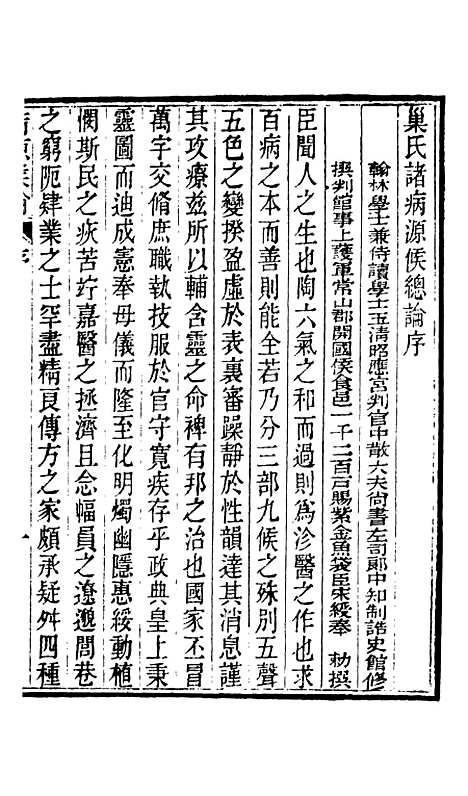 巢氏諸病源候總論序
翰林學士兼侍讀學士玉清昭應宮判官中散大夫尚書左司郞中知制誥史館修
撰判館事上護軍常山郡開國侯食邑一千二百戸賜紫金魚袋臣宋綬奉 勑撰
臣聞人之生也陶六氣之和而過則爲沴醫之作也求
百病之本而善則能全若乃分三部九候之殊別五聲
五色之變揆盈虛於表裏審躁靜於性韻達其消息謹
其攻療茲所以輔含靈之命裨有邦之治也國家丕冒
萬宇交脩庶職執技服於官守寬疾存乎政典皇上秉
靈圖而迪成憲奉母儀而隆至化明燭幽隱惠綏動植
憫斯民之疢苦竚嘉醫之拯濟且念幅員之遼邈閭巷
之窮阨肄業之士罕盡精良傳方之家頗承疑舛四種